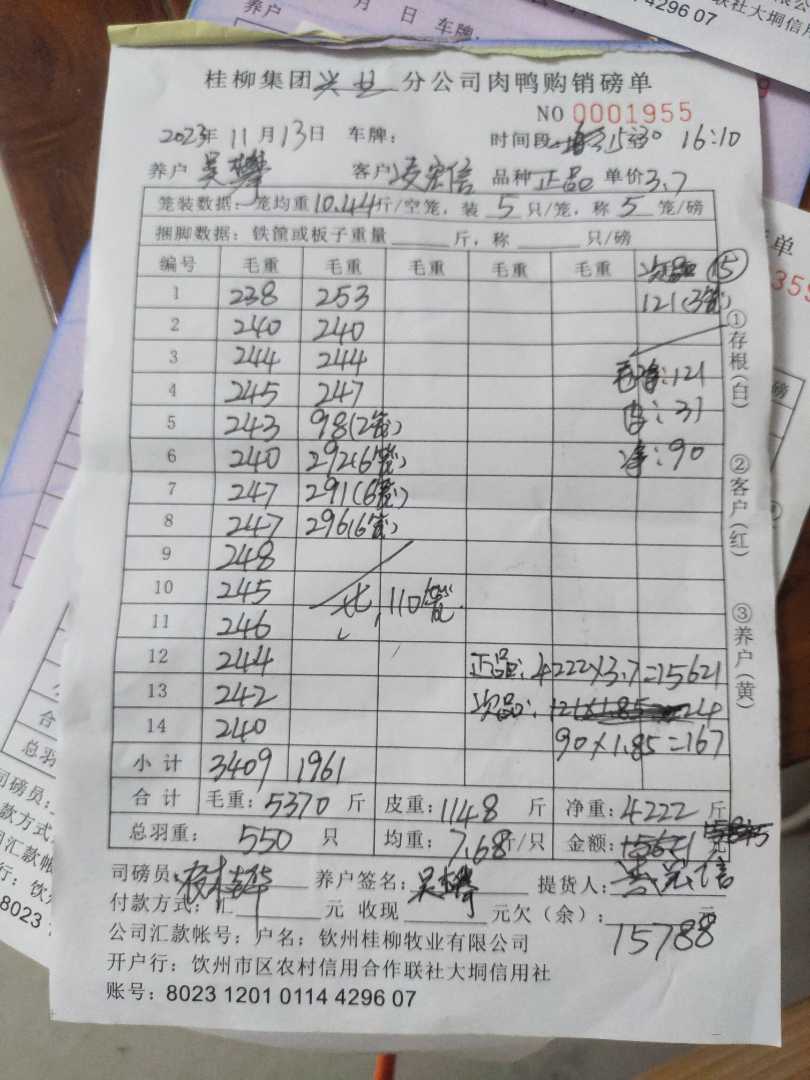 养户 月 日 车牌.
4296 07
联社大垌信用
桂柳集团 分公司肉鸭购销磅单
NO 0001955
2023年 11月13日 车牌： 时间段 15:30 16:10
养户 吴 客户凌宏信 品种正品 单价3.7
笼装数据：笼均重10.44斤/空笼，装 5 只/笼，称 5 笼/磅
捆脚数据：铁筐或板子重量 斤，称 只/磅
编号 毛重 毛重 毛重 毛重 毛重 次品 15
1 238 253 121(3笼)
2 240 240
3 244 244 毛:121
4 245 247 皮:31
5 243 98(2笼)
6 240 292(6笼) 净:90
7 247 291(6笼)
8 247 296(6笼)
9 248
10 245 共110笼.
11 246
12 244 正品:4222×3.7=15621
13 242 次品: 121×1.85
14 240 90×1.85=167
小计 3409 1961
合计 毛重：5370 斤 皮重：1148 斤 净重：4222 斤
总羽重： 550 只 均重：7.68斤/只 金额：15621 元
司磅员： 养户签名：吴 提货人：凌宏信
付款方式：汇 元 收现 元欠（余）： 元
15788
公司汇款帐号：户名：钦州桂柳牧业有限公司
开户行：饮州市区农村信用合作联社大垌信用社
账号：8023 1201 0114 4296 07
①存根(白)
②客户(红)
③养户(黄)
单
359
磅
合
总羽
司磅员：
付款方式
司汇款帐
行：饮
8023